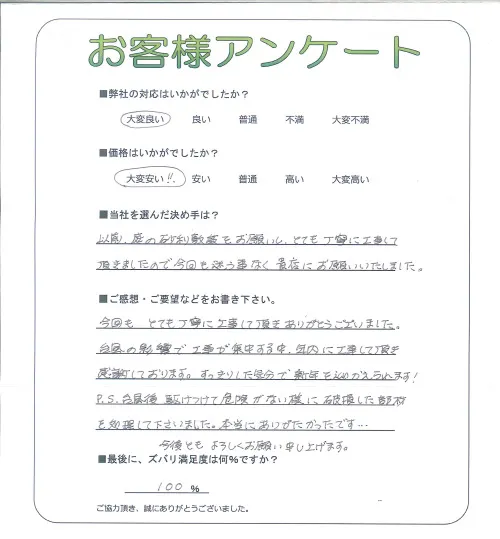 お客様アンケート
■弊社の対応はいかがでしたか？
大変良い 良い 普通 不満 大変不満
■価格はいかがでしたか？
大変安い!! 安い 普通 高い 大変高い
■当社を選んだ決め手は？
以前、庭の砂利敷きをお願いし、とても丁寧に工事して
頂きましたので今回も迷う事なく貴店にお願いいたしました。
■ご感想・ご要望などをお書き下さい。
今回も とても丁寧に工事して頂きありがとうございました。
台風の影響で工事が集中する中、年内に工事して頂き
感謝しております。すっきりした気分で新年をむかえられます!
P.S. 台風後 駆けつけて危険がない様に破損した部材
を処理して下さいました。本当にありがたかったです…
今後とも よろしくお願い申し上げます。
■最後に、ズバリ満足度は何%ですか？
100 %
ご協力頂き、誠にありがとうございました。